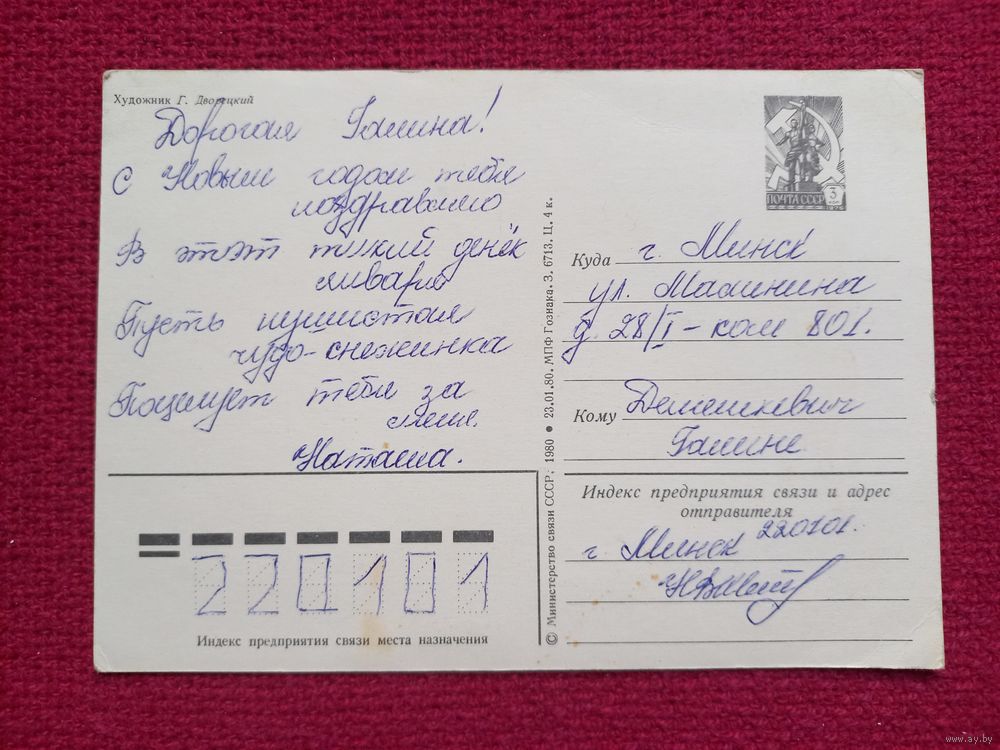 Художник Г. Дворецкий
Дорогая Галина!
С Новым годом тебя
поздравляю
В этот тихий денёк
января
Пусть пушистая
чудо-снежинка
Поцелует тебя за
меня.
Наташа.
ПОЧТА СССР 3 КОП
1976
Куда г. Минск
ул. Малинина
д. 28/I - ком 801.
Кому
Галине
Индекс предприятия связи и адрес
отправителя
г Минск 220101.
220101
Индекс предприятия связи места назначения
© Министерство связи СССР, 1980 • 23.01.80. МПФ Гознака. З. 6713. Ц. 4 к.
www.ay.by